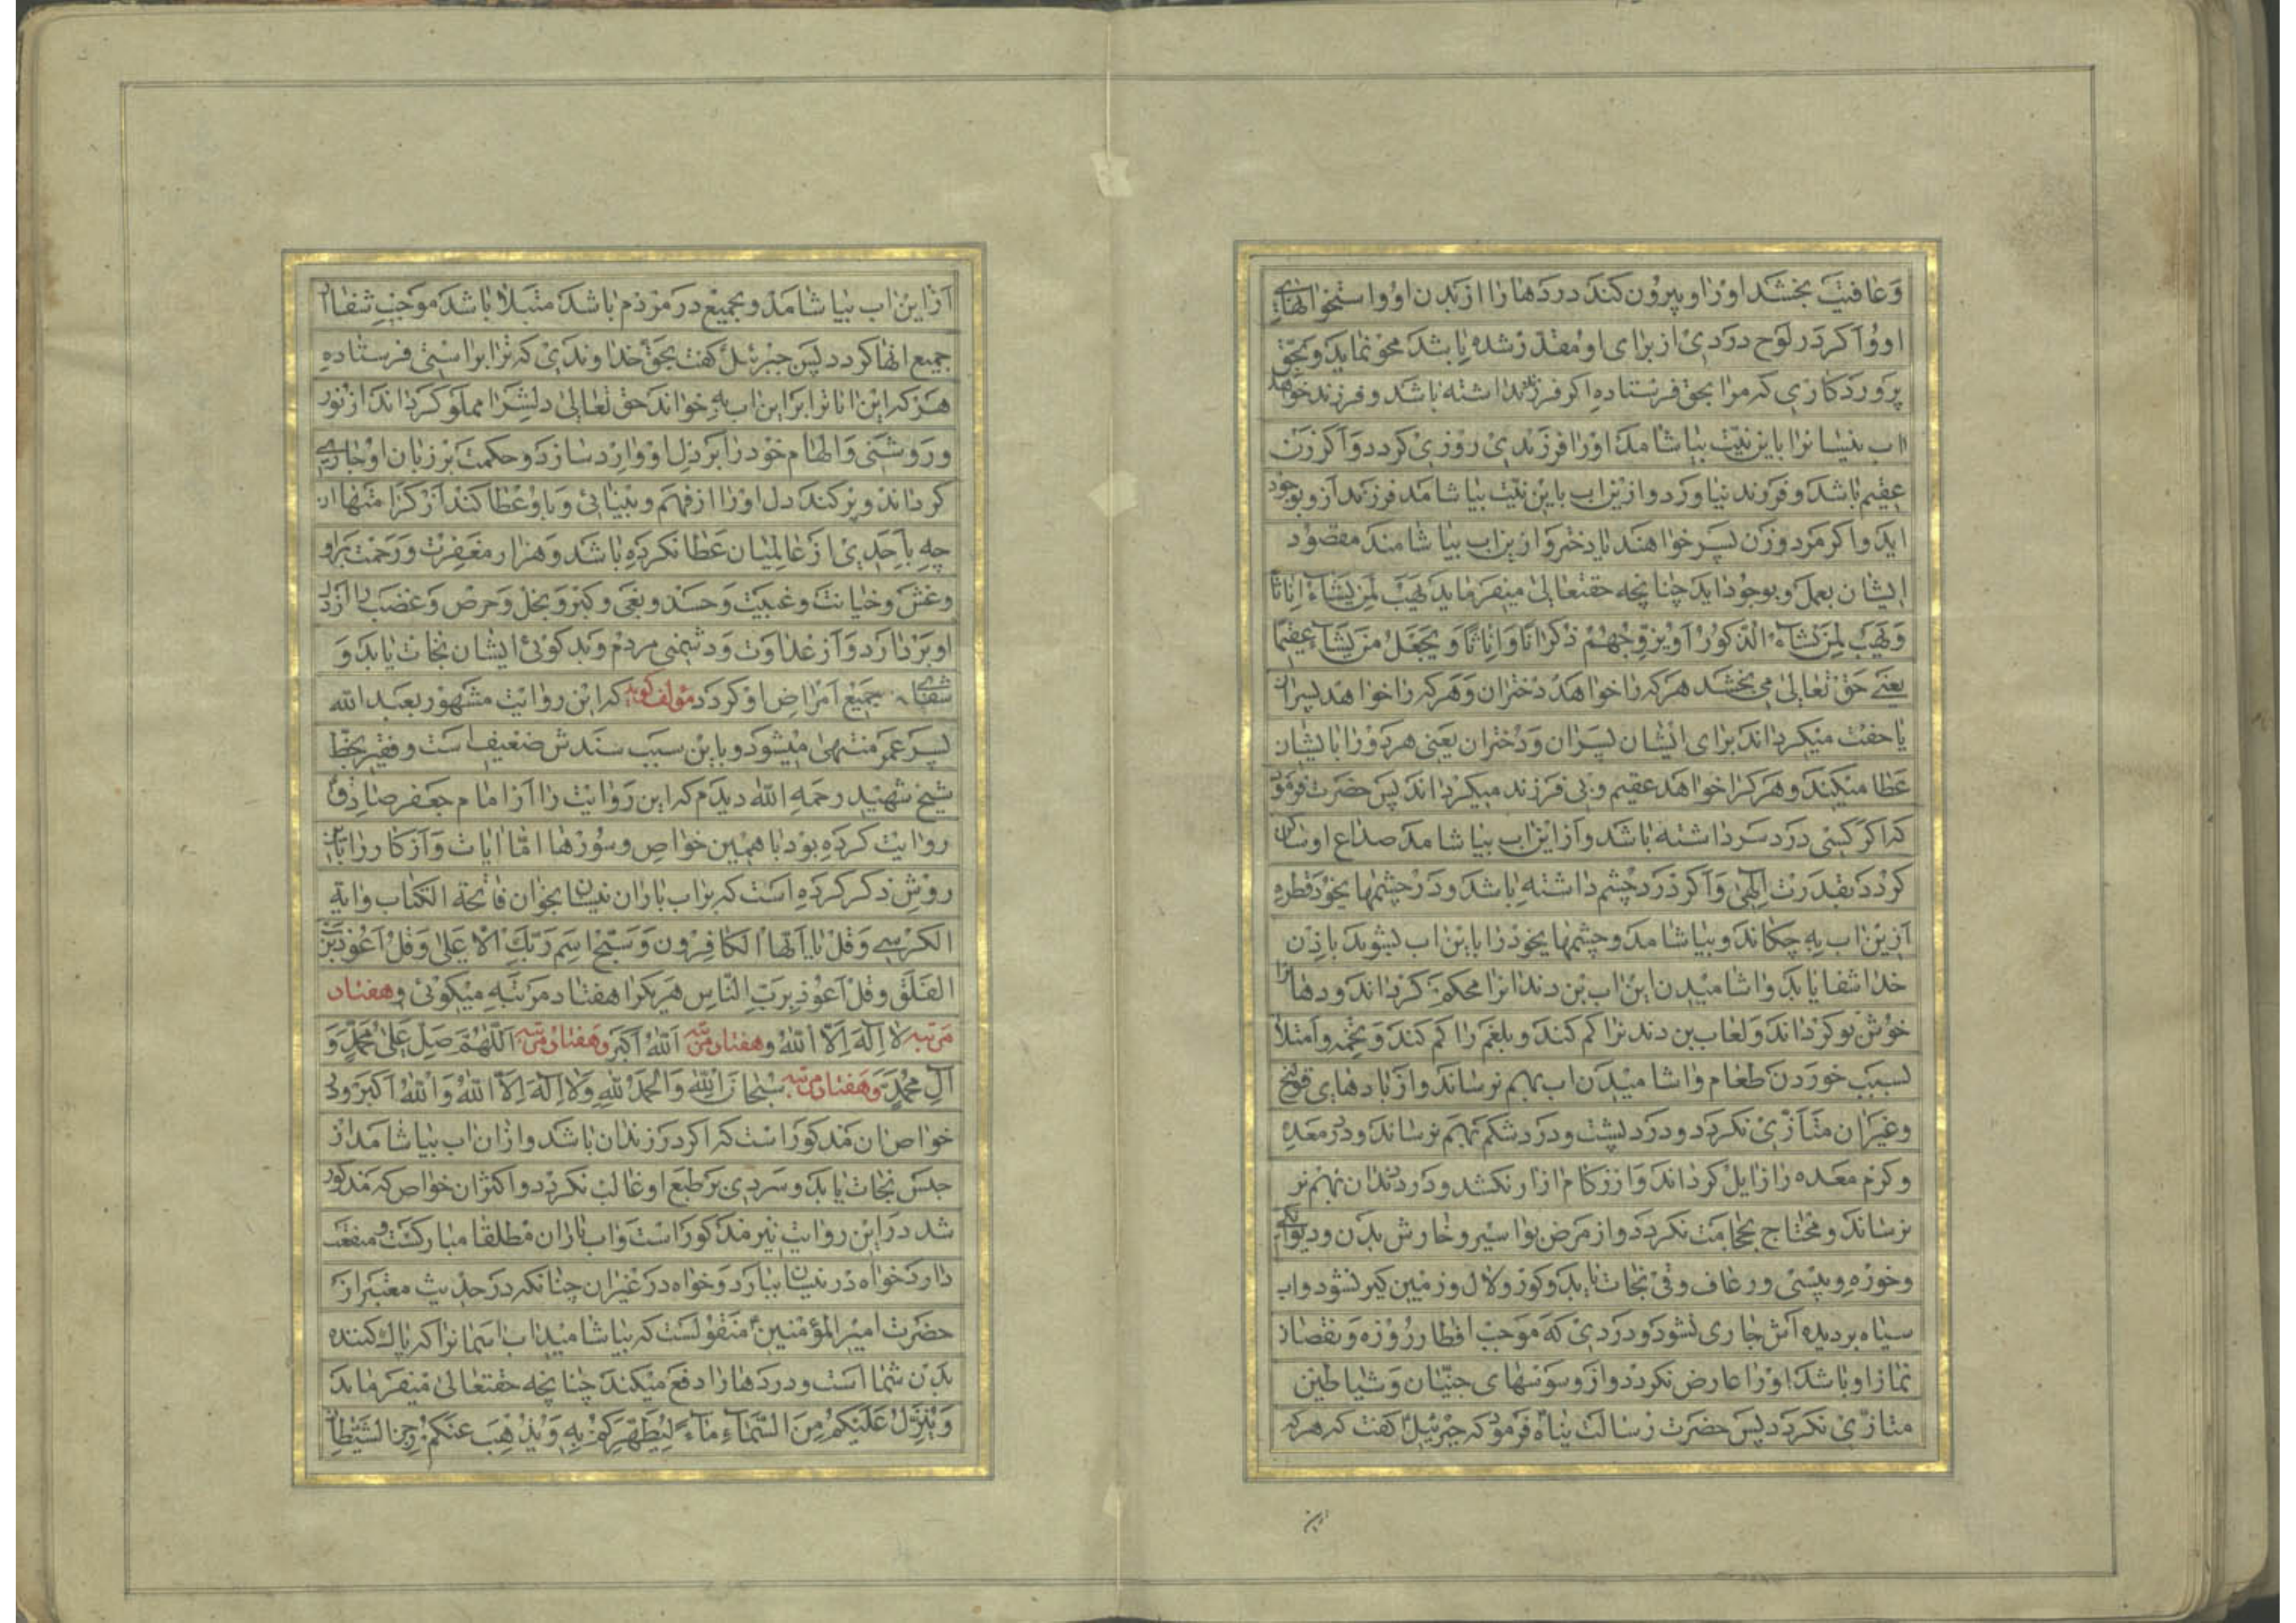 وَعافیت بخشد اورا و بیرون کند دردها را از بدن او و استخوانهای
او و اکر در لوح دردی از برای او مقدر شده باشد محو نماید و بحق
پروردکاری که مرا بحق فرستاده اکر فرزند نداشته باشد و فرزند خواهد
اب نیسانرا باین نیّت بیاشامد اورا فرزندی روزی کردد و اکر زن
عقیم باشد و فرزند نیاورد و ازین اب باین نیّت بیاشامد فرزند ازو بوجود
اید و اکر مرد و زن پسر خواهند یا دختر و ازین اب بیاشامند مقصود
ایشان بعمل و بوجود اید چنانچه حقتعالی میفرماید یَهَبُ لِمَن یَشاءُ اِناثًا
وَیَهَبُ لِمَن یَشاءُ الذُّکُورَ اَو یُزَوِّجُهُم ذُکرانًا وَاِناثًا وَیَجعَلُ مَن یَشاءُ عَقیمًا
یعنے حق تعالی می بخشد هر که را خواهد دختران و هر که را خواهد پسران
یا جفت میکرداند برای ایشان پسران و دختران یعنی هر دو را بایشان
عطا میکند و هر کرا خواهد عقیم و بی فرزند میکرداند پس حضرت فرمود
که اکر کسی درد سر داشته باشد و از این اب بیاشامد صداع او ساکن
کردد بقدرت الهی و اکر درد چشم داشته باشد و در چشمهای خود قطره
ازین اب به چکاند و بیاشامد و چشمهای خود را باین اب بشوید باذن
خدا شفا یابد و اشامیدن این اب بن دندانرا محکم کرداند و دهانرا
خوش بو کرداند و لعاب بن دندنرا کم کند و بلغم را کم کند و تخمه و امتلا
بسبب خوردن طعام و اشامیدن اب بهم نرساند و از بادهای قولنج
و غیر ان متاذّی نکردد و درد پشت و درد شکم بهم نرساند و درد معده
و کرم معده را زایل کرداند و از زکام ازار نکشد و درد دندان بهم نر
نرساند و محتاج بحجامت نکردد و از مرض بواسیر و خارش بدن و دیوانکی
و خوره و پیسی و رعاف و قی نجات یابد و کور و لال و زمین کیر نشود و اب
سیاه بر دیده اش جاری نشود و دردی که موجب افطار روزه و نقصان
نماز او باشد اورا عارض نکردد و از وسوسهای جنّیان و شیاطین
متاذّی نکردد پس حضرت رسالت پناه فرمود که جبرئیل کفت که هر که
ازین
از این اب بیاشامد و بجمیع درد مردم باشد مبتلا باشد موجب شفا از
جمیع انها کردد پس جبرئیل کفت بحق خداوندی که ترا براستی فرستاده
هر که این ایاترا بر این اب به خواند حق تعالی دلشرا مملو کرداند از نور
و روشنی و الهام خود را بر دل او وارد سازد و حکمت بر زبان او جاری
کرداند و پر کند دل اورا از فهم و بینائی و باو عطا کند از کرامتها ان
چه باحدی از عالمیان عطا نکرده باشد و هزار مغفرت و رحمت بر او
و غش و خیانت و غیبت و حسد و بغی و کبر و بخل و حرص و غضب را از دل
او بر دارد و از عداوت و دشمنی مردم و بد کوئی ایشان نجات یابد و
شفای جمیع امراض او کردد مؤلف کوید که این روایت مشهور بعبد الله
پسر عمر منتهی میشود و باین سبب سندش ضعیف است و فقیر بخطّ
شیخ شهید رحمه الله دیدم که این روایت را از امام جعفر صادق
روایت کرده بود با همین خواص و سورها امّا ایات و اذکار را باین
روش ذکر کرده است که بر اب باران نیسان بخوان فاتحة الکتاب و ایة
الکرسے و قُل یا اَیُّهَا الکافِرون و سَبِّحِ اسمَ رَبِّکَ الاَعلی و قُل اَعُوذُ بِرَبِّ
الفَلَق و قُل اَعُوذُ بِرَبِّ النّاسِ هر یکرا هفتاد مرتبه میکوئی و هفتاد
مرتبه لا اِلهَ اِلاّ اللهُ و هفتاد مرتبه اَللهُ اَکبَر و هفتاد مرتبه اَللّهُمَّ صَلِّ عَلی مُحَمَّدٍ وَ
آلِ مُحَمَّدٍ و هفتاد مرتبه سُبحانَ اللهِ وَالحَمدُ للهِ وَلا اِلهَ اِلاَّ اللهُ وَاللهُ اَکبَر و در
خواص ان مذکور است که اکر در زندان باشد و ازان اب بیاشامد از
حبس نجات یابد و سردی بر طبع او غالب نکردد و اکثر ان خواص که مذکور
شد در این روایت نیز مذکور است و اب باران مطلقا مبارکست و منفعت
دارد خواه در نیسان ببارد و خواه در غیر ان چنانکه در حدیث معتبر از
حضرت امیر المؤمنین منقولست که بیاشامید اب اسمانرا که پاک کننده
بدن شما است و دردها را دفع میکند چنانچه حقتعالی میفرماید
وَیُنَزِّلُ عَلَیکُم مِنَ السَّماءِ ماءً لِیُطَهِّرَکُم بِهِ وَیُذهِبَ عَنکُم رِجزَ الشَّیطانِ